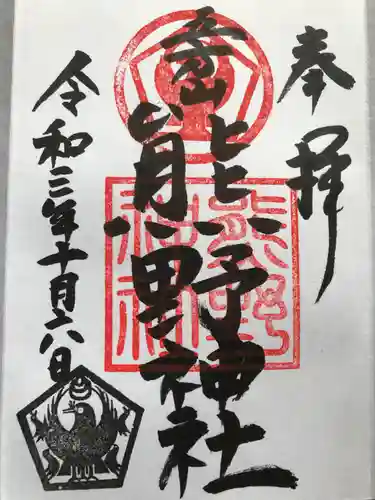 奉拝
熊野神社
令和三年十月六日
熊野
神社